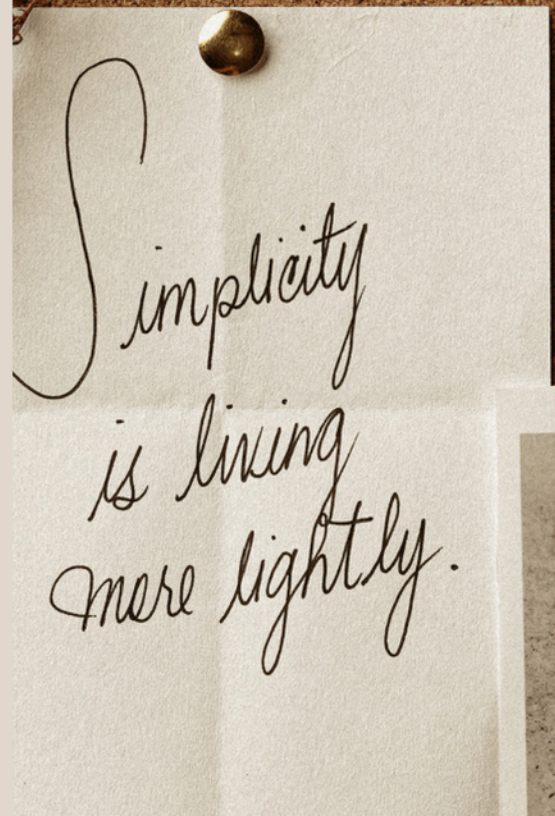 Simplicity
is living
more lightly.